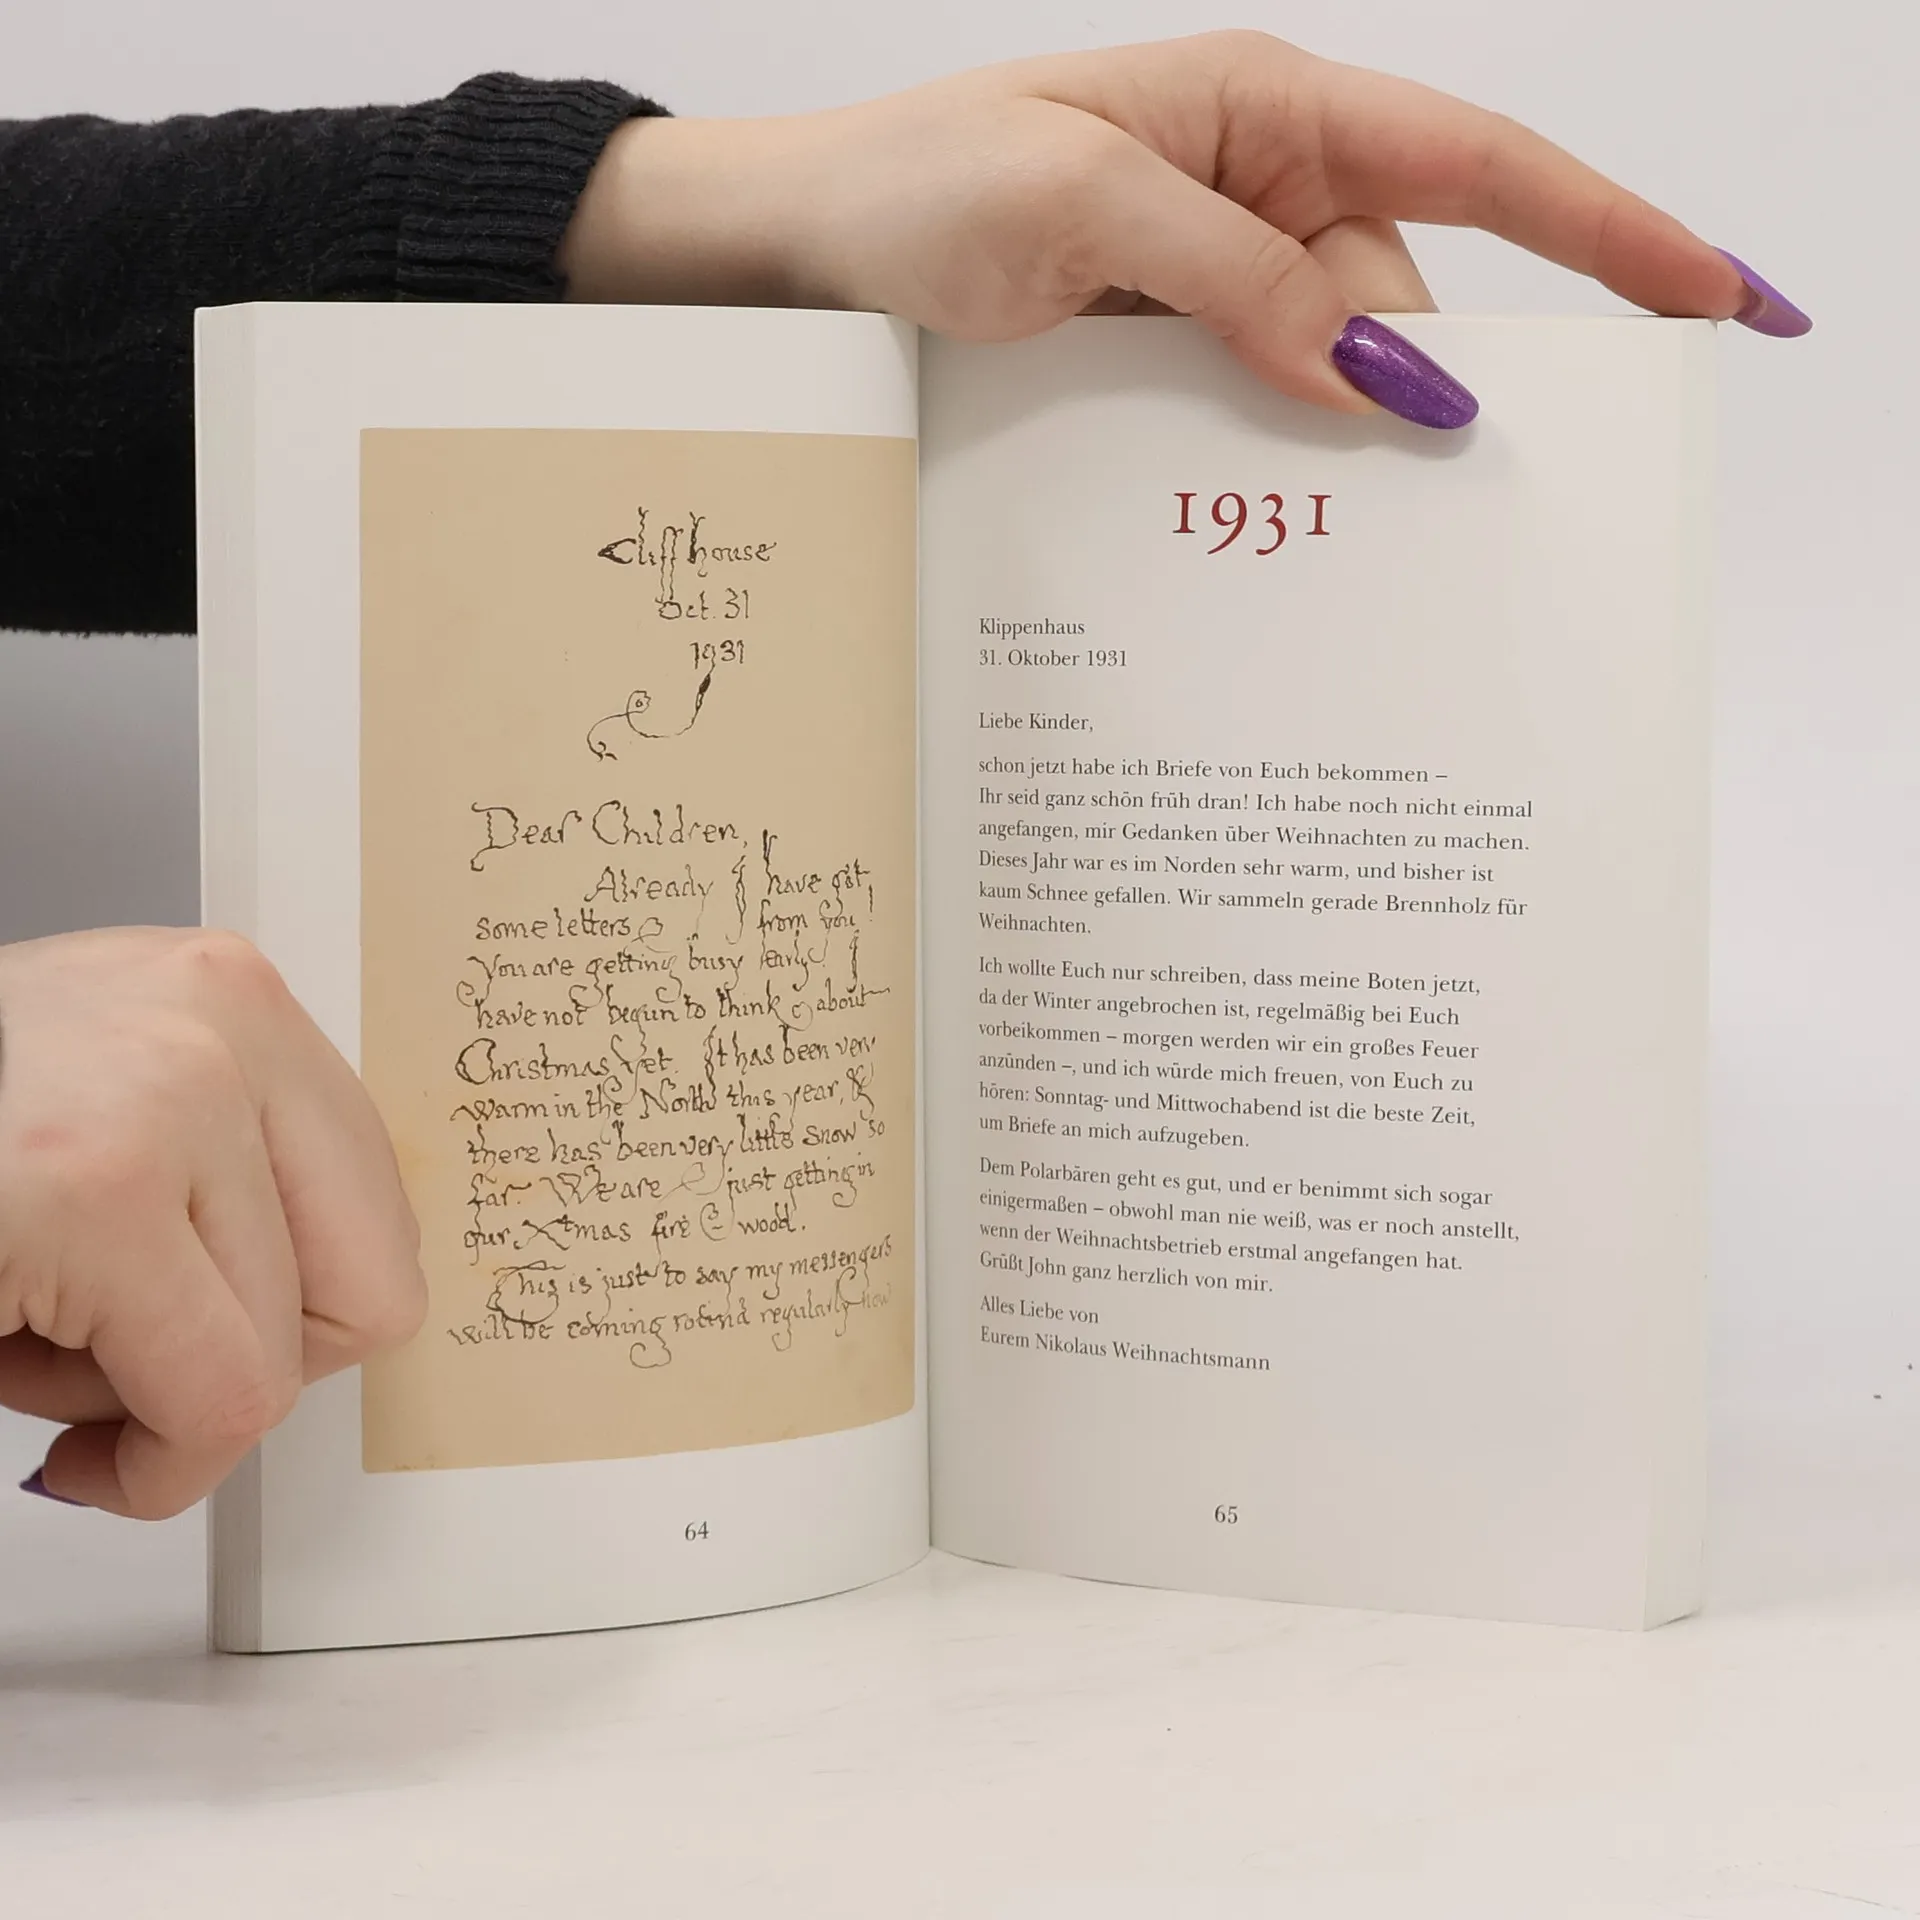 Cliff house
Oct. 31
1931
Dear Children,
Already I have got
some letters from you!
You are getting busy early! I
have not begun to think about
Christmas yet. It has been very
warm in the North this year, &
there has been very little snow so
far. We are just getting in
our Xmas fire wood.
This is just to say my messengers
will be coming round regularly now
64
1931
Klippenhaus
31. Oktober 1931
Liebe Kinder,
schon jetzt habe ich Briefe von Euch bekommen –
Ihr seid ganz schön früh dran! Ich habe noch nicht einmal
angefangen, mir Gedanken über Weihnachten zu machen.
Dieses Jahr war es im Norden sehr warm, und bisher ist
kaum Schnee gefallen. Wir sammeln gerade Brennholz für
Weihnachten.
Ich wollte Euch nur schreiben, dass meine Boten jetzt,
da der Winter angebrochen ist, regelmäßig bei Euch
vorbeikommen – morgen werden wir ein großes Feuer
anzünden –, und ich würde mich freuen, von Euch zu
hören: Sonntag- und Mittwochabend ist die beste Zeit,
um Briefe an mich aufzugeben.
Dem Polarbären geht es gut, und er benimmt sich sogar
einigermaßen – obwohl man nie weiß, was er noch anstellt,
wenn der Weihnachtsbetrieb erstmal angefangen hat.
Grüßt John ganz herzlich von mir.
Alles Liebe von
Eurem Nikolaus Weihnachtsmann
65